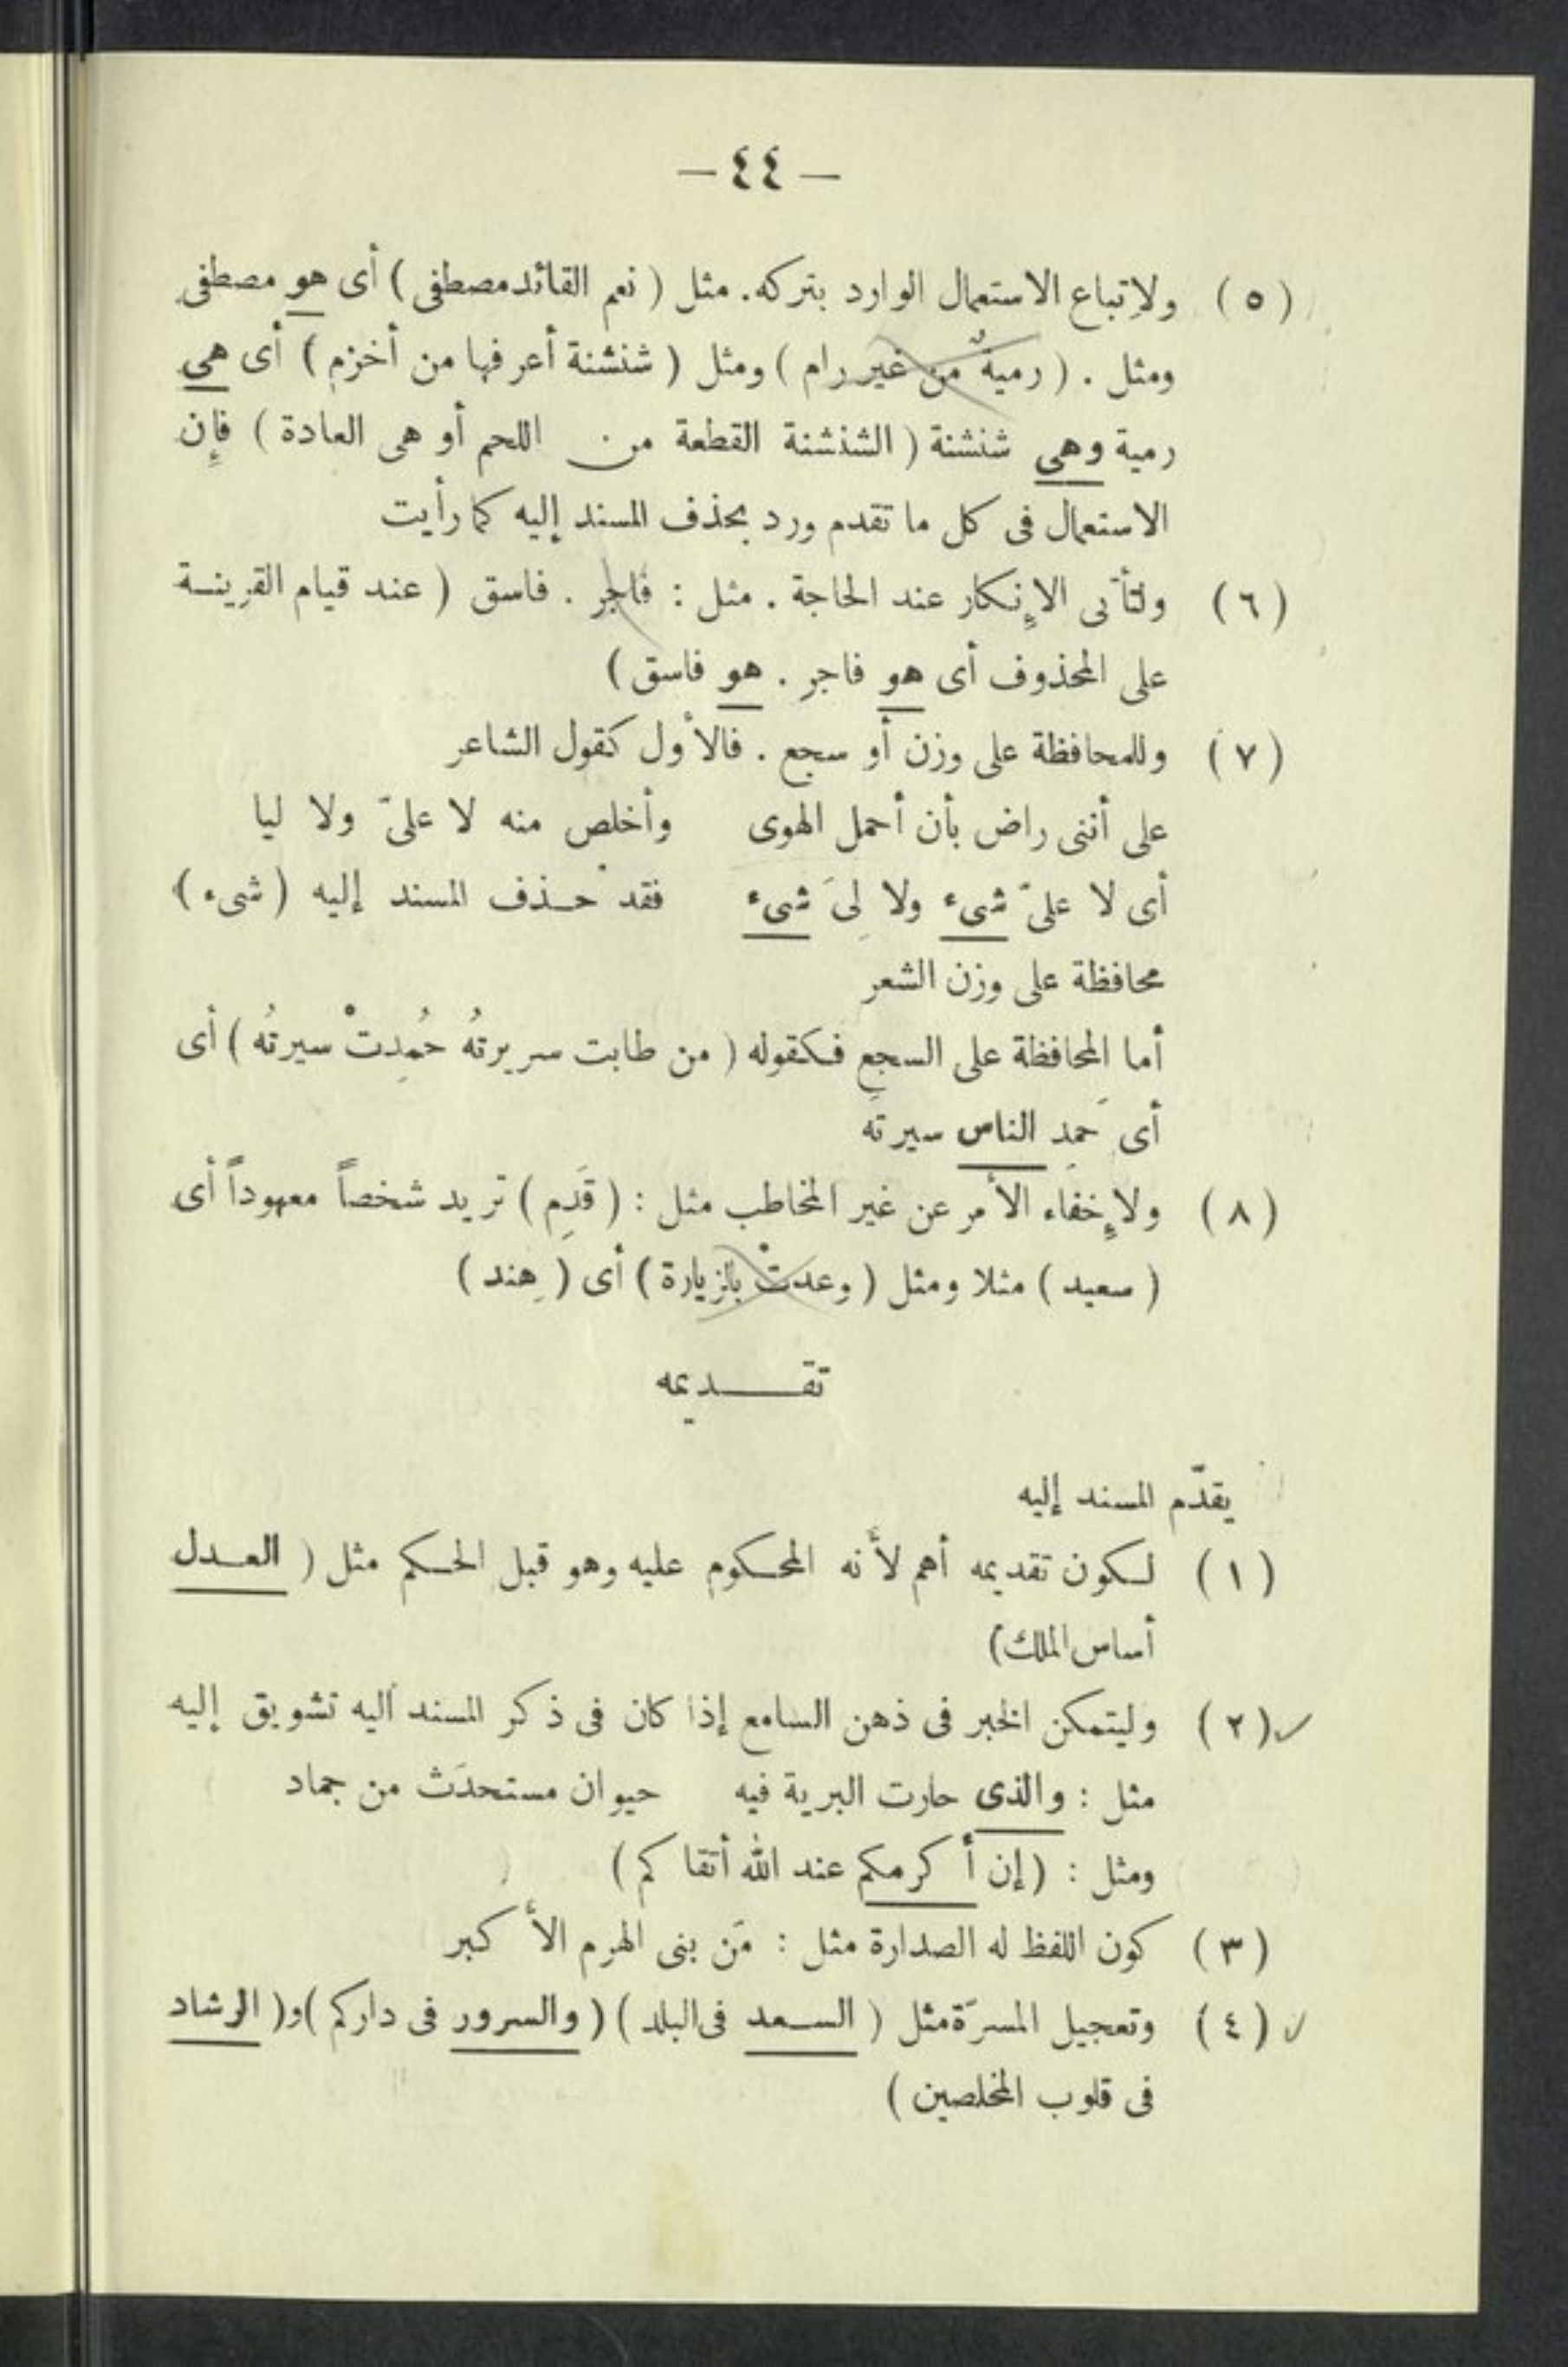 — ٤٤ —
( ٥ ) ولاِتباع الاستعمال الوارد بتركه. مثل ( نعم القائد مصطفى ) أى هو مصطفى
ومثل . ( رميةٌ من غير رام ) ومثل ( شنشنة أعرفها من أخزم ) أى هى
رمية وهى شنشنة ( الشنشنة القطعة من اللحم أو هى العادة ) فإِن
الاستعمال فى كل ما تقدم ورد بحذف المسند إليه كما رأيت
( ٦ ) ولتأتى الاِنكار عند الحاجة . مثل : فاجر . فاسق ( عند قيام القرينة
على المحذوف أى هو فاجر . هو فاسق )
( ٧ ) وللمحافظة على وزن أو سجع . فالأول كقول الشاعر
على أننى راض بأن أحمل الهوى وأخلص منه لا علىّ ولا ليا
أى لا علىّ شىء ولا لِىَ شىء فقد حذف المسند إليه ( شىء )
محافظة على وزن الشعر
أما المحافظة على السجع فكقوله ( من طابت سريرتهُ حُمِدتْ سيرتهُ ) أى
أى حَمِد الناس سيرتَه
( ٨ ) ولإِخفاء الأمر عن غير المخاطب مثل : ( قَدِم ) تريد شخصاً معهوداً أى
( سعيد ) مثلا ومثل ( وعدتْ بالزيارة ) أى ( هِند )
تقـــديمه
يقدّم المسند إليه
( ١ ) لكون تقديمه أهم لأنه المحكوم عليه وهو قبل الحكم مثل ( العدل
أساس الملك )
( ٢ ) وليتمكن الخبر فى ذهن السامع إذا كان فى ذكر المسند اليه تشويق إليه
مثل : والذى حارت البرية فيه حيوان مستحدَث من جماد
ومثل : ( إن أكرمكم عند الله أتقاكم )
( ٣ ) كون اللفظ له الصدارة مثل : مَن بنى الهرم الأكبر
( ٤ ) وتعجيل المسرّة مثل ( السعد فى البلد ) ( والسرور فى داركم ) و ( الرشاد
فى قلوب المخلصين )